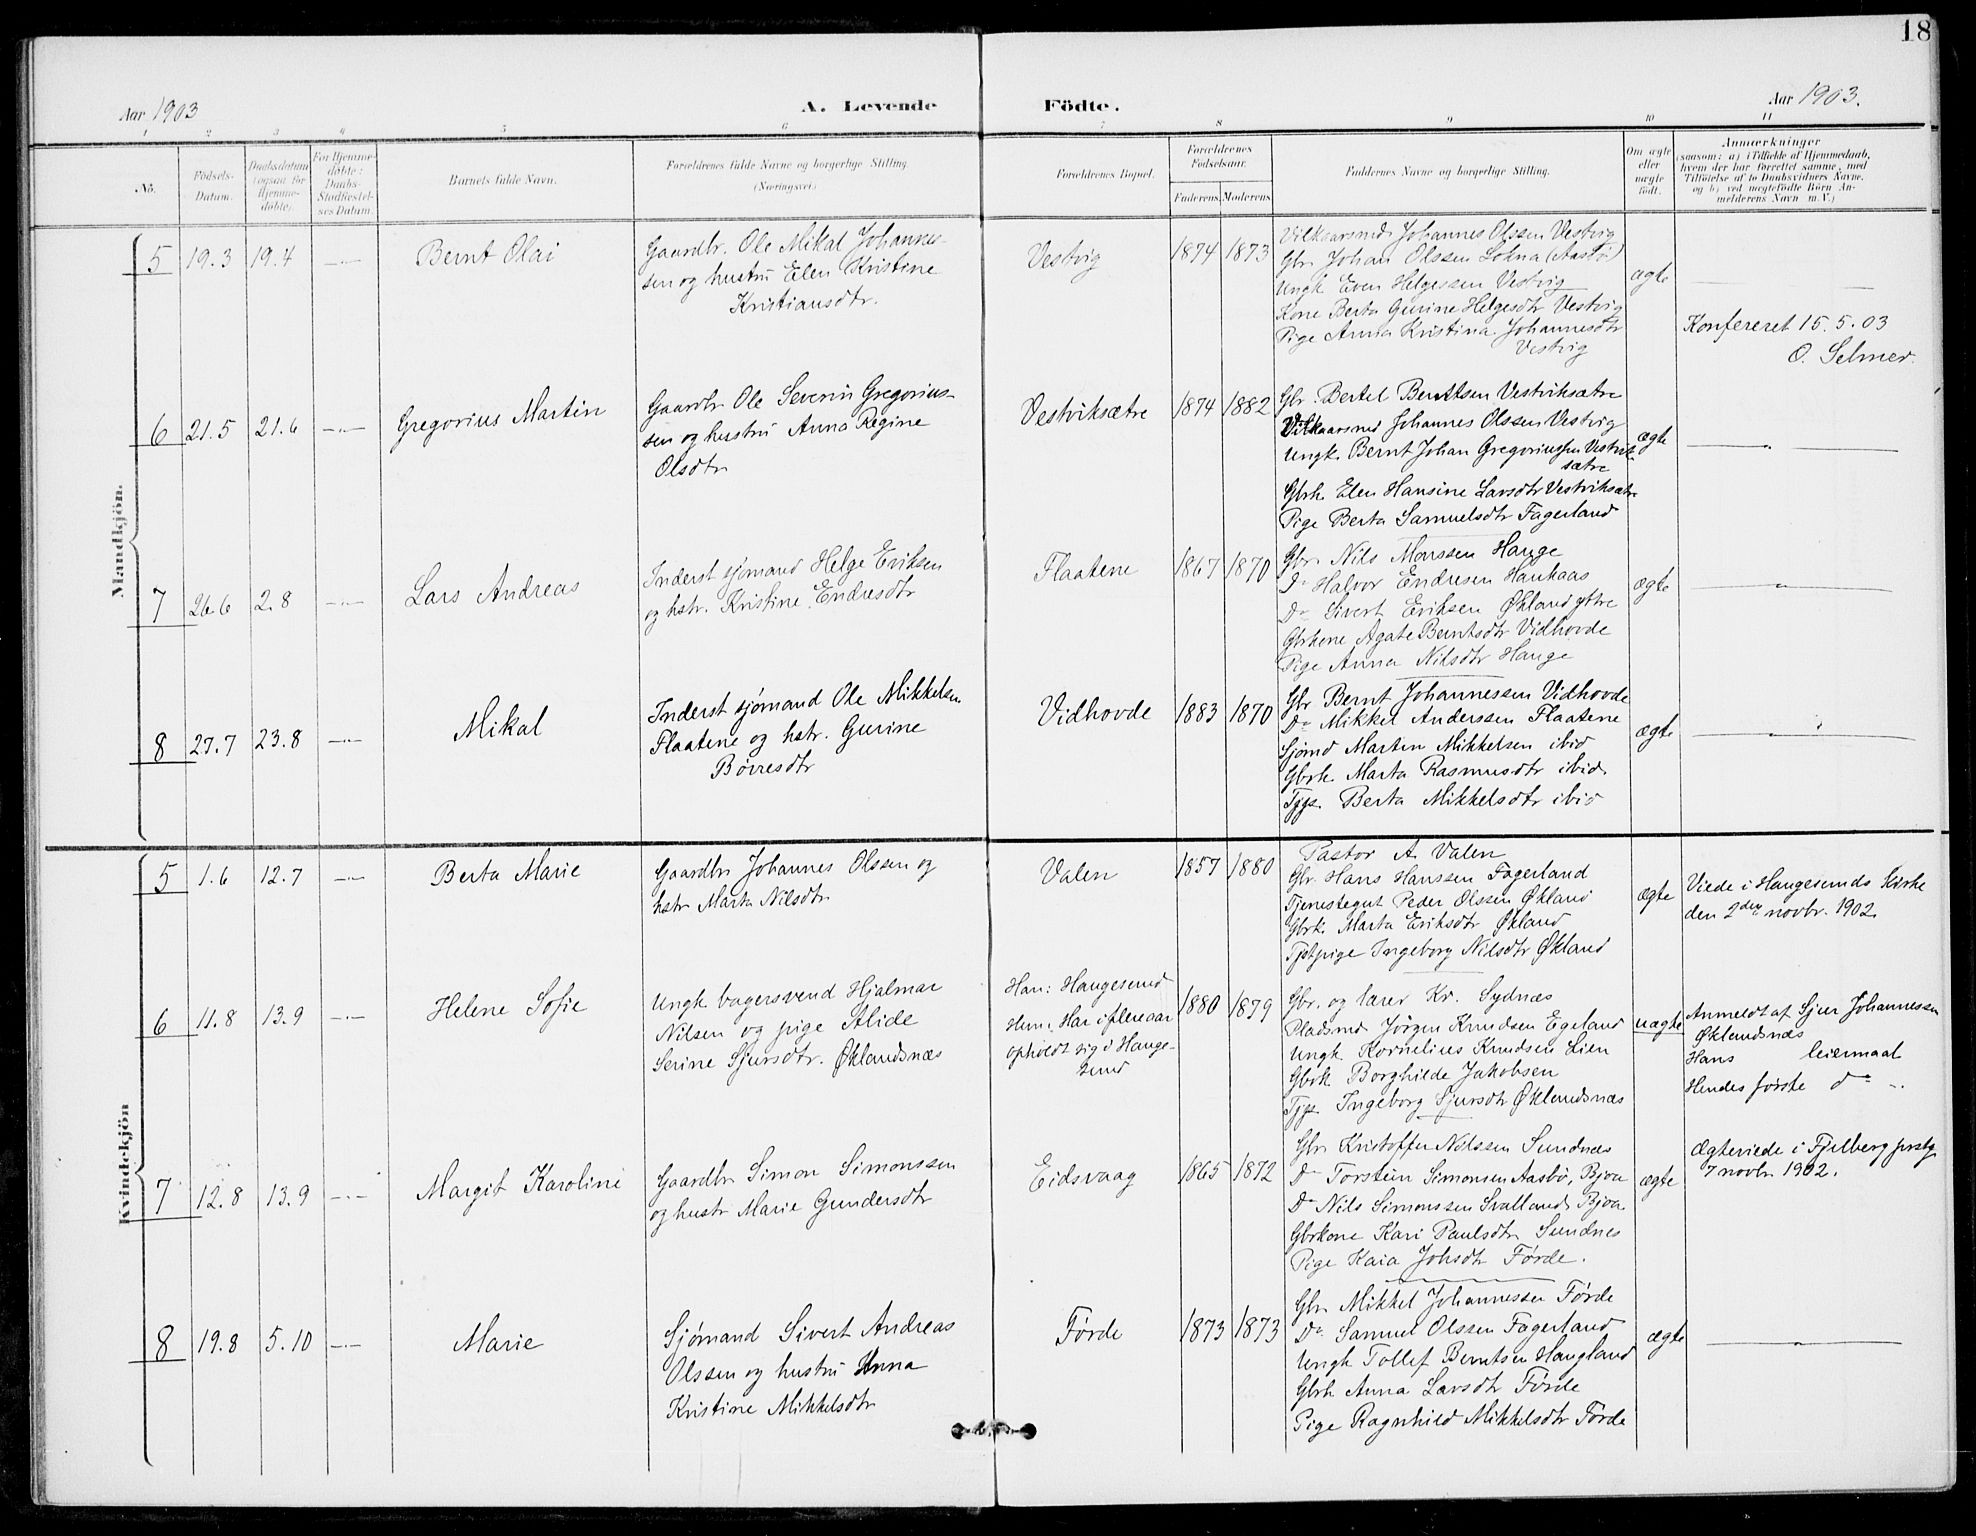 18
Aar 1903
A. Levende
Födte.
Aar 1903.
1 2 3 4 5 6 7 8 9 10 11
No.
Födsels-
Datum.
Daabsdatum
(ogsaa for
Hjemme-
döbte).
For Hjemme-
döbte:
Daabs-
Stadfæstel-
ses Datum.
Barnets fulde Navn.
Forældrenes fulde Navne og borgerlige Stilling.
(Næringsvei)
Forældrenes Bopæl.
Forældrenes
Födselsaar.
Faderens.
Moderens.
Faddernes Navne og borgerlige Stilling.
Om ægte
eller
uægte
födt.
Anmærkninger
(saasom: a) i Tilfælde af Hjemmedaab,
hvem der har forrettet samme, med
Tilföielse af to Daabsvidners Navne,
og b) ved uægtefödte Börn An-
melderens Navn m. V.)
Mandkjön.
5
19.3
19.4
Bernt Olai
Gaardbr. Ole Mikal Johannes-
sen og hustru Elen Kristine
Kristiansdtr.
Vestvig
1874
1873
Vilkaarsmd Johannes Olssen Vestvig
Gbr Johan Olssen Lokna (Aasbø)
Ungk Even Helgessen Vestvig
Kone Berta Gurine Helgesdtr Vestvig
Pige Anna Kristina Johannesdtr
Vestvig
ægte
Konfereret 15.5.03
O. Selmer.
6
21.5
21.6
Gregorius Martin
Gaardbr Ole Severin Gregorius-
sen og hustru Anna Regine
Olsdtr
Vestviksætre
1874
1882
Gbr. Bertel Berntsen Vestviksætre
Vilkaarsmd Johannes Olssen Vestvig
Ungk. Bernt Johan Gregoriussen Vestvik-
sætre
Gbrk. Elen Hansine Larsdtr Vestviksætre
Pige Berta Samuelsdtr Fagerland
ægte
7
26.6
2.8
Lars Andreas
Inderst sjømand Helge Eriksen
og hstr. Kristine Endresdtr
Flaatene
1867
1870
Gbr Nils Monssen Hauge
Do Halvor Endresen Haukaas
Do Sivert Eriksen Økland ytre
Gbrkone Agate Berntsdtr Vidhovde
Pige Anna Nilsdtr Hauge
ægte
8
27.7
23.8
Mikal
Inderst sjømand Ole Mikkelsen
Flaatene og hstr. Gurine
Børresdtr
Vidhovde
1883
1870
Gbr Bernt Johannessen Vidhovde
Do Mikkel Anderssen Flaatene
Sjømd Martin Mikkelsen ibid
Gbrk. Marta Rasmusdtr ibid.
Tjpg. Berta Mikkelsdtr ibid
ægte
Kvindekjön
5
1.6
12.7
Berta Marie
Gaardbr Johannes Olssen og
hstr Marta Nilsdtr
Valen
1857
1880
Pastor A. Valen
Gbr. Hans Hanssen Fagerland
Tjenestegut Peder Olssen Økland
Gbrk. Marta Eriksdtr Økland
Tjstpige Ingeborg Nilsdtr Økland
ægte
Viede i Haugesunds Kirke
den 2den novbr. 1902.
6
11.8
13.9
Helene Sofie
Ungk bagersvend Hjalmar
Nilsen og pige Alide
Serine Sjursdtr. Øklandsnæs
Han: Haugesund
Hun: Har i flere aar
opholdt sig i Hauge-
sund
1880
1879
Gbr. og lærer Kr. Sydnæs
Pladsmd Jørgen Knudsen Egeland
Ungk Kornelius Knudsen Lien
Gbrk Borghilde Jakobsen
Tjpg. Ingeborg Sjursdtr Øklandsnæs
uægte
Anmeldt af Sjur Johannessen
Øklandsnæs
Hans leiermaal
Hendes første do
7
12.8
13.9
Margit Karoline
Gaardbr Simon Simonssen
og hustr Marie Gundersdtr
Eidsvaag
1865
1872
Gbr Kristoffer Nilssen Sundnæs
Do Torstein Simonsen Aasbø, Bjoa
Do Nils Simonssen Svalland, Bjoa
Gbrkone Kari Paulsdtr Sundnes
Pige Kaia Johsdtr Førde.
ægte
Ægteviede i Fjelberg prstg
7 novbr. 1902.
8
19.8
5.10
Marie
Sjømand Sivert Andreas
Olssen og hustru Anna
Kristine Mikkelsdtr
Førde
1873
1873
Gbr Mikkel Johannessen Førde
Do Samuel Olssen Fagerland
Ungk Tollef Berntsen Haugland
Gbrk Anna Larsdtr Førde
Pige Ragnhild Mikkelsdtr Førde
ægte